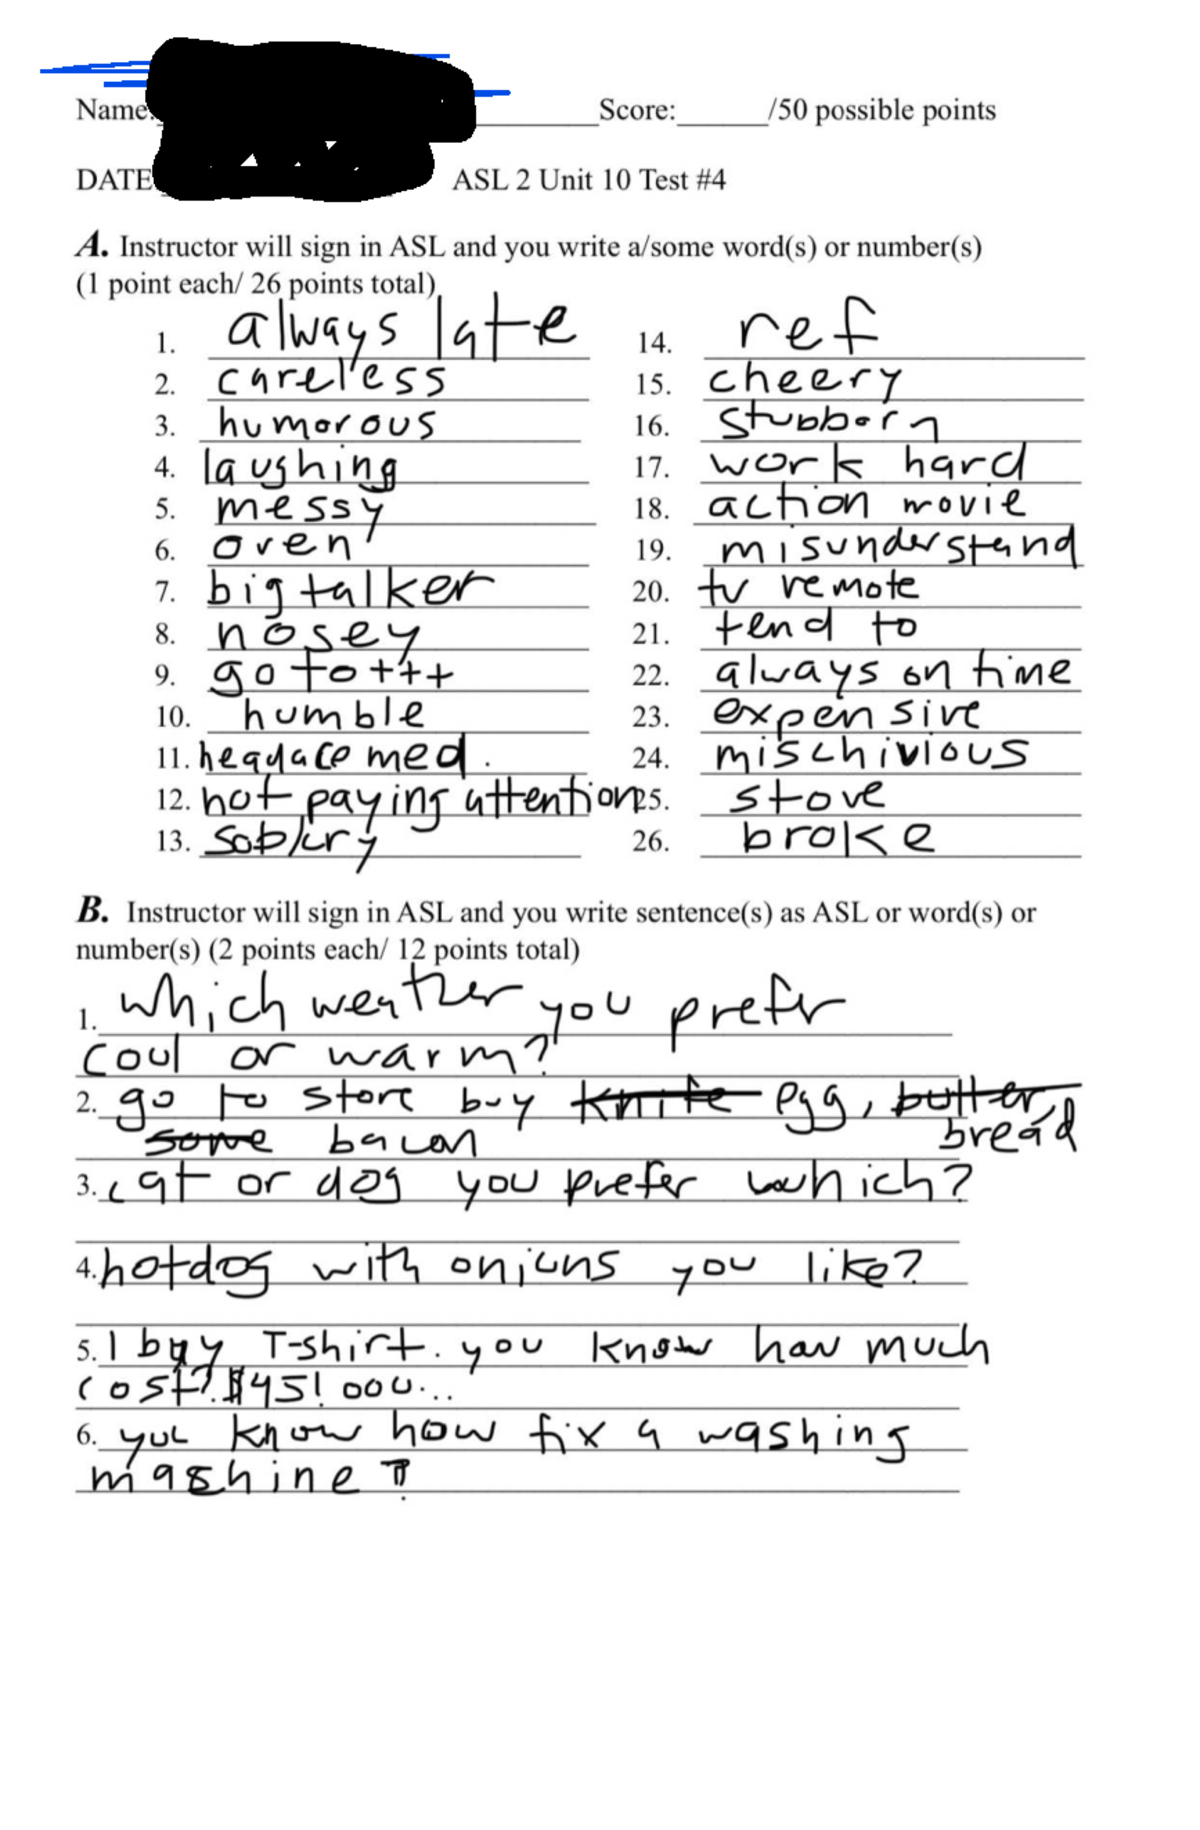 Name: Score: /50 possible points
DATE ASL 2 Unit 10 Test #4
A. Instructor will sign in ASL and you write a/some word(s) or number(s)
(1 point each/ 26 points total)
1. always late
2. careless
3. humorous
4. laughing
5. messy
6. oven
7. big talker
8. nosey
9. go to +++
10. humble
11. headace med.
12. not paying attention
13. sob/cry
14. ref
15. cheery
16. stubborn
17. work hard
18. action movie
19. misunderstand
20. tv remote
21. tend to
22. always on time
23. expensive
24. mischivious
25. stove
26. broke
B. Instructor will sign in ASL and you write sentence(s) as ASL or word(s) or
number(s) (2 points each/ 12 points total)
1. which weather you prefr
cool or warm?
2. go to store buy knife egg, butter,
some bacon bread
3. cat or dog you prefer which?
4. hotdog with onions you like?
5. I buy T-shirt. you know how much
cost? $45! ooo...
6. you know how fix a washing
mashine ?